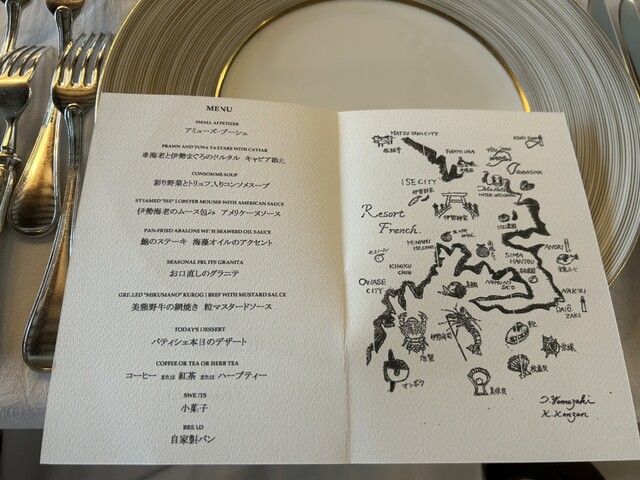 MENU
SMALL APPETIZER
アミューズ・ブーシュ
PRAWN AND TUNA TARTARE WITH CAVIAR
車海老と伊勢まぐろのタルタル キャビア添え
CONSOMME SOUP
彩り野菜とトリュフ入りコンソメスープ
STEAMED "ISE" LOBSTER MOUSSE WITH AMERICAN SAUCE
伊勢海老のムース包み アメリケーヌソース
PAN-FRIED ABALONE WITH SEAWEED OIL SAUCE
鮑のステーキ 海藻オイルのアクセント
SEASONAL FRUITS GRANITA
お口直しのグラニテ
GRILLED "MIKUMANO" KUROGE BEEF WITH MUSTARD SAUCE
美熊野牛の網焼き 粒マスタードソース
TODAY'S DESSERT
パティシェ本日のデザート
COFFEE OR TEA OR HERB TEA
コーヒー または 紅茶 または ハーブティー
SWEETS
小菓子
BREAD
自家製パン
MATSUSAKI CITY
FUTAMIURA
ISE CITY
伊勢神宮
Resort
French.
MINAMI ISE CHO
KIHOKU
CHOU
OWASE
CITY
SIMA
HANTOU
ANORI
NAKIRI
DAIO
ZAKI
伊勢海老
マンボウ
真珠貝